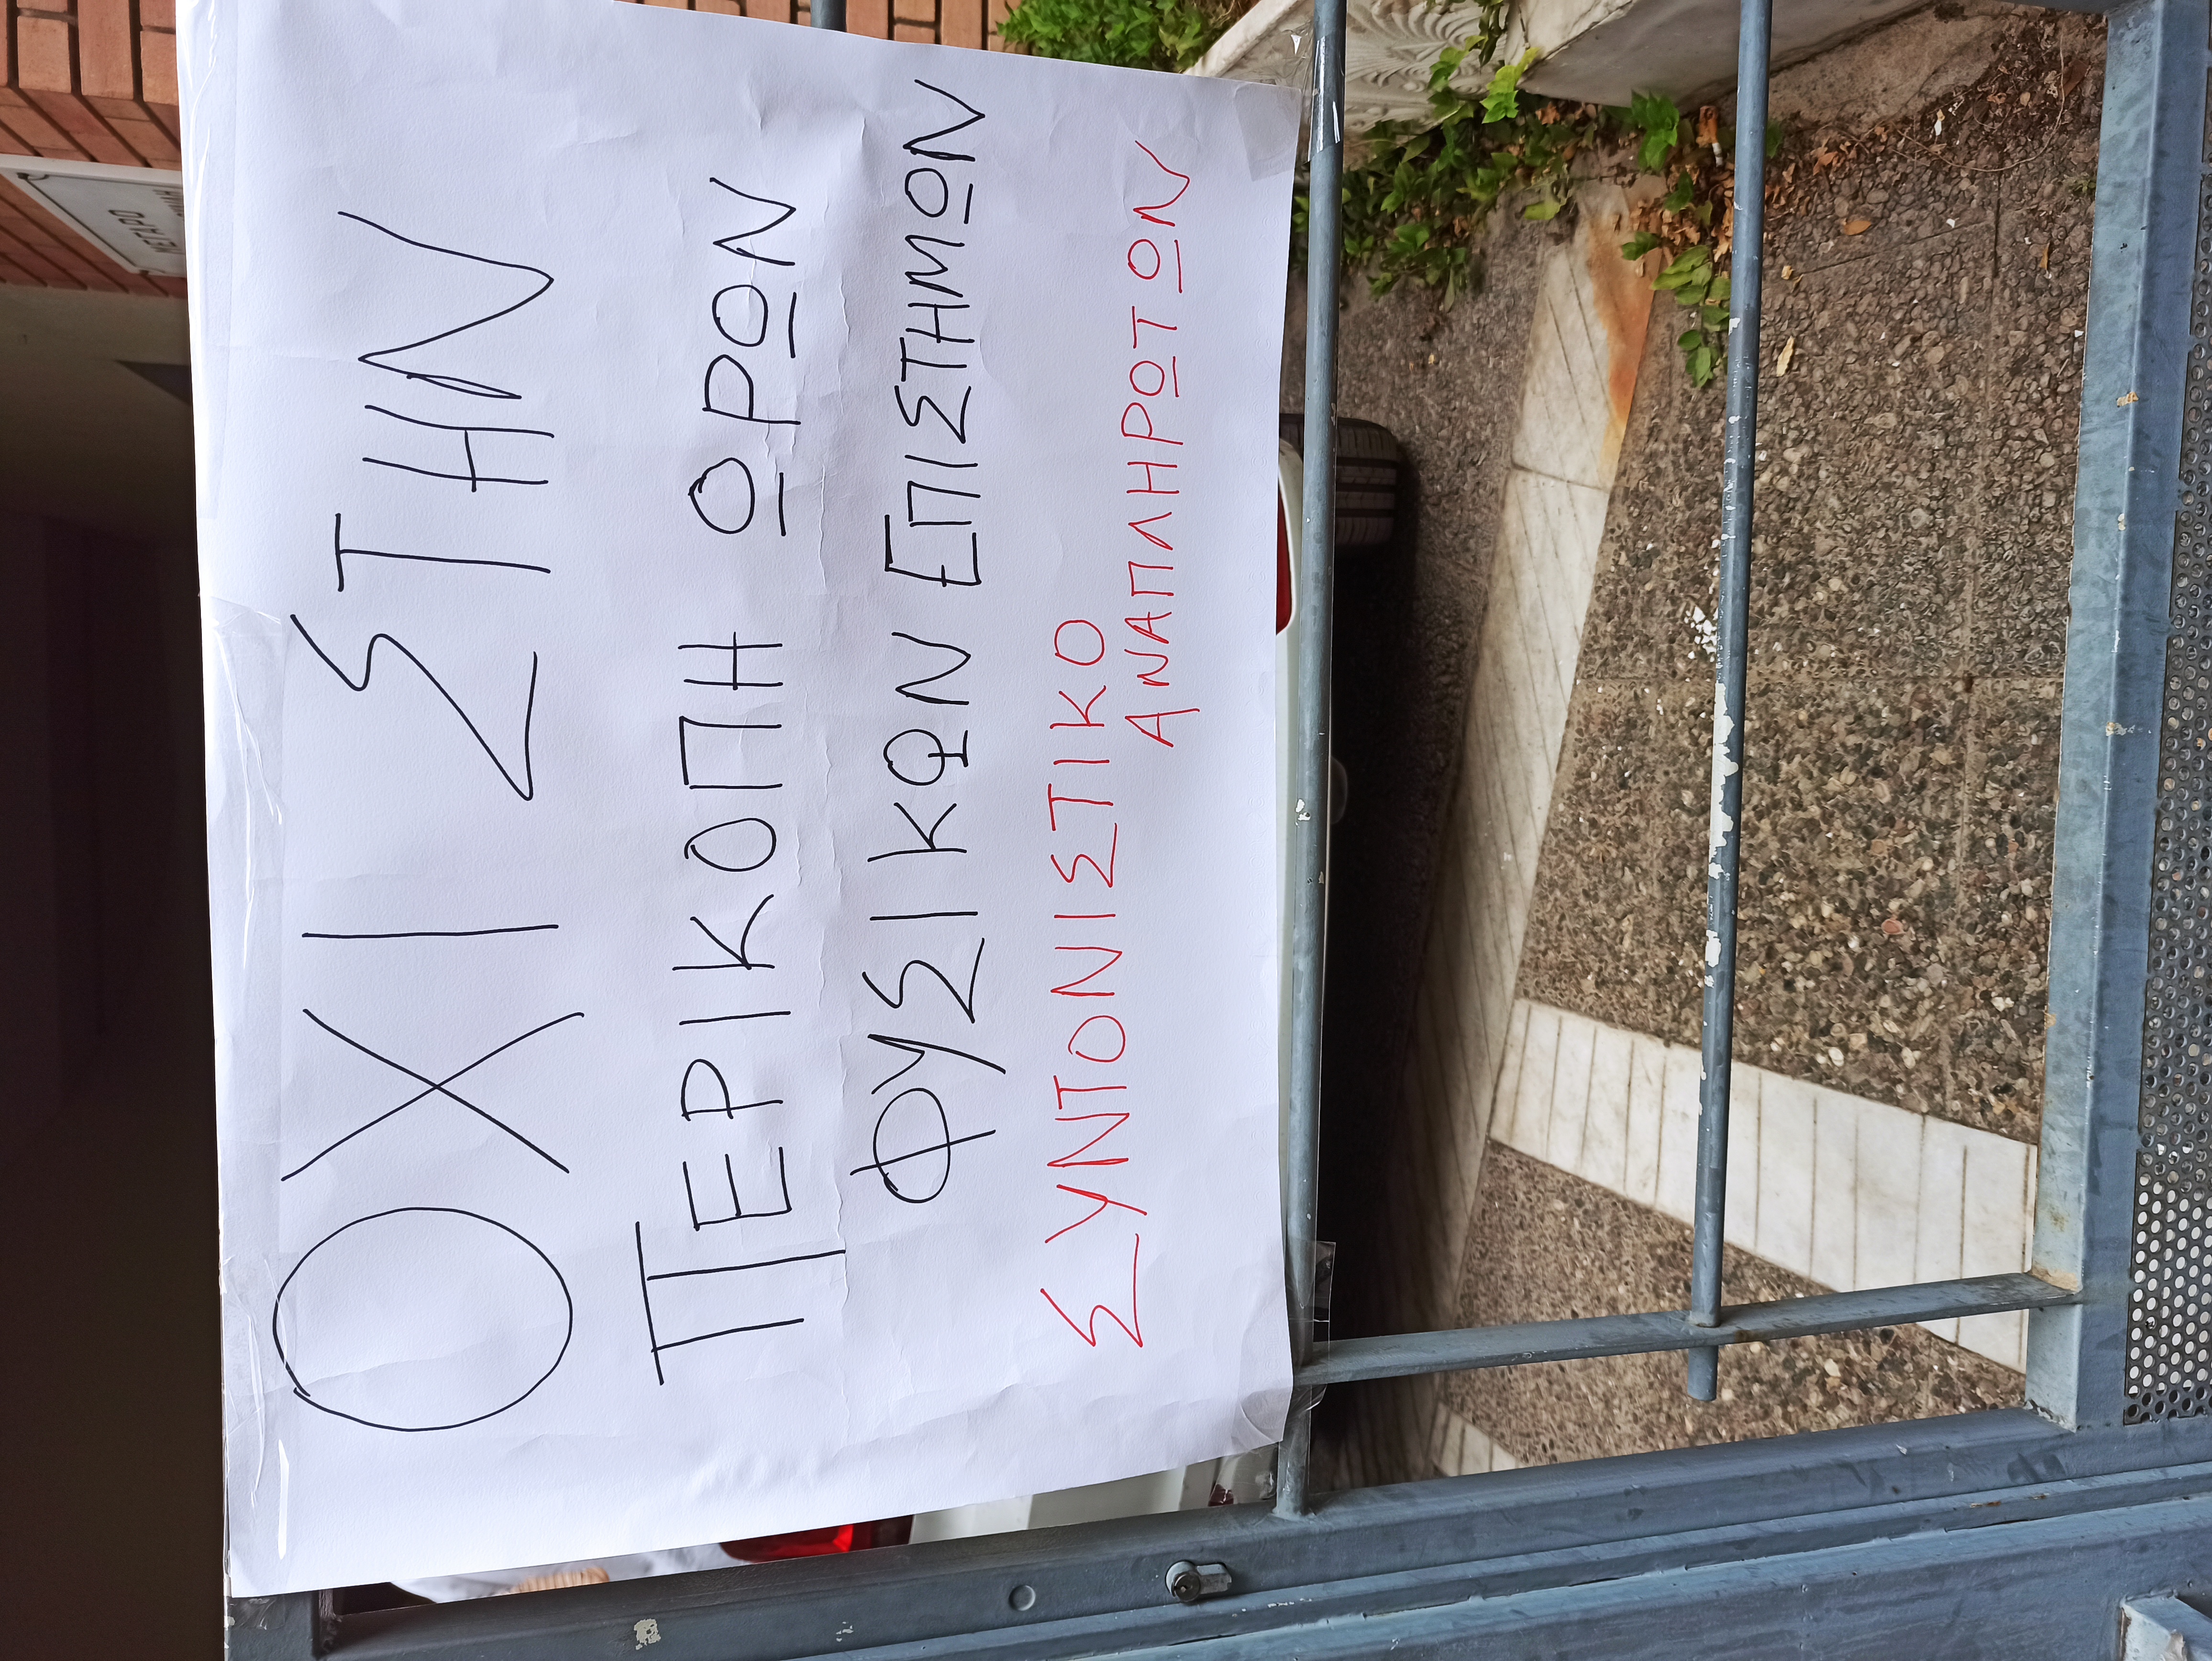 ΟΧΙ ΣΤΗΝ
ΠΕΡΙΚΟΠΗ ΩΡΩΝ
ΦΥΣΙΚΩΝ ΕΠΙΣΤΗΜΩΝ
ΣΥΝΤΟΝΙΣΤΙΚΟ
ΑΝΑΠΛΗΡΩΤΩΝ